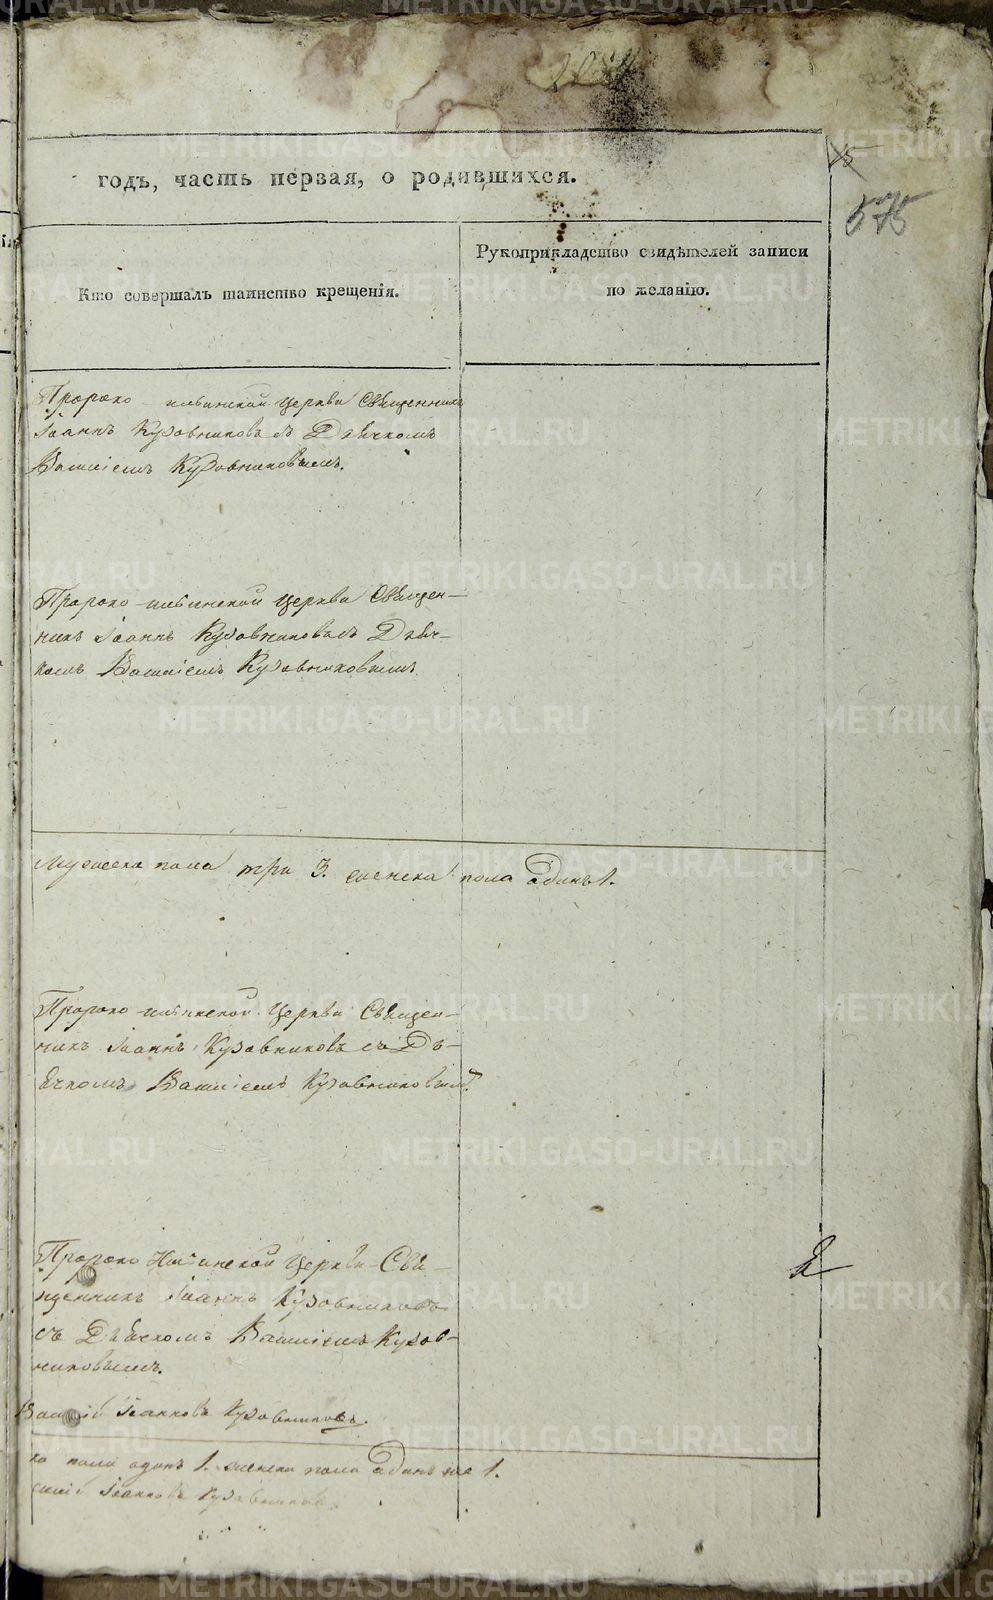 годъ, часть первая, о родившихся.
15
575
Кто совершалъ таинство крещенія.
Рукоприкладство свидѣтелей записи
по желанію.
Пророко-ильинской Церкви Священникъ
Іоаннъ Кузовниковъ съ Дьячкомъ
Василіемъ Кузовниковымъ.
Пророко-ильинской Церкви Священ-
никъ Іоаннъ Кузовниковъ съ Дьяч-
комъ Василіемъ Кузовниковымъ
Мужеска пола три 3. женска пола одинъ 1.
Пророко-ильинской Церкви Священ-
никъ Іоаннъ Кузовниковъ съ Дь-
ячкомъ Василіемъ Кузовниковымъ.
Пророко Ильинской Церкви Свя-
щенникъ Іоаннъ Кузовниковъ
съ Дьячкомъ Василіемъ Кузов-
никовымъ.
Василій Іоанновъ Кузовниковъ.
ка пола одинъ 1. женска пола одинъ же 1.
силій Іоанновъ Кузовниковъ.
METRIKI.GASO-URAL.RU